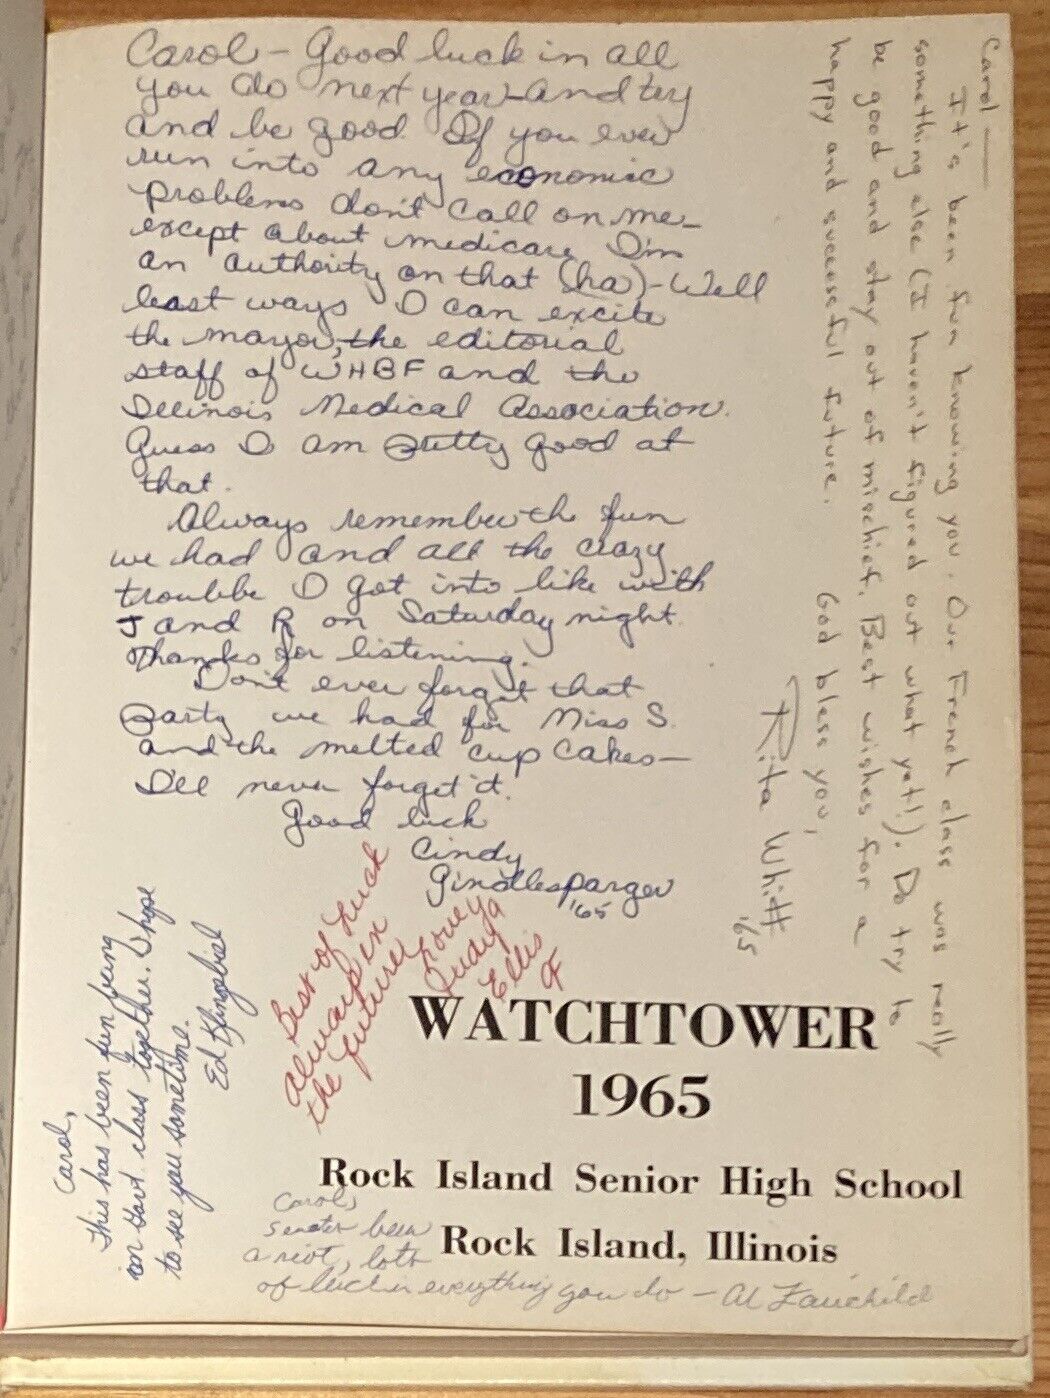 Carol – Good luck in all
you do next year – and try
and be good. If you ever
run into any economic
problems don't call on me –
except about medicare I'm
an authority on that (ha) – Well
least ways I can excite
the mayor, the editorial
staff of WHBF and the
Illinois Medical Association.
Guess I am pretty good at
that.
Always remember the fun
we had and all the crazy
troubbe I got into like with
J and R on Saturday night.
Thanks for listening.
Don't ever forget that
party we had for Miss S.
and the melted cup cakes –
I'll never forget it.
Good luck
Cindy
Gindlesparger
'65
Carol —
It's been fun knowing you. Our French class was really
something else (I haven't figured out what yet!). Do try to
be good and stay out of mischief. Best wishes for a
happy and successful future. God bless you,
Rita Whitt
'65
Best of Luck
always in
the future
Love ya
Judy
Ellis
Carol,
This has been fun being
in Govt. class together. I hope
to see you sometime.
Ed Klingebiel
WATCHTOWER
1965
Rock Island Senior High School
Rock Island, Illinois
Carol,
been
a riot, lots
of luck in everything you do – Al Fairchild